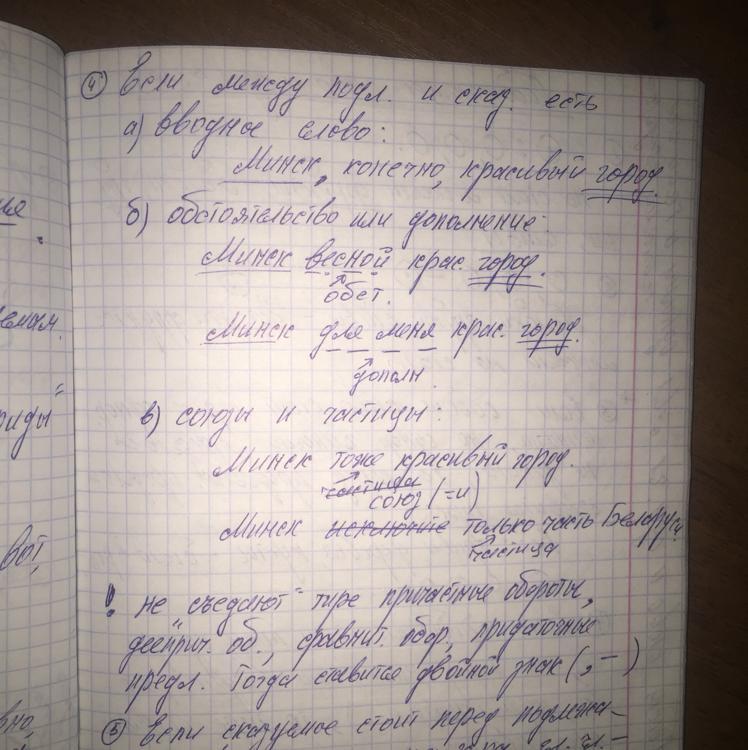 ④ Если между подл. и сказ. есть
а) вводное слово:
Минск, конечно, красивый город.
б) обстоятельство или дополнение:
Минск весной крас. город.
обст.
Минск для меня крас. город.
дополн.
в) союзы и частицы:
Минск тоже красивый город.
частица
союз (=и)
Минск исключите только часть Беларуси.
частица
! не "съедают" тире причастные обороты,
дееприч. об., сравнит. обор., придаточные
предл. Тогда ставится двойной знак (, –)
⑤ Если сказуемое стоит перед подлежа-